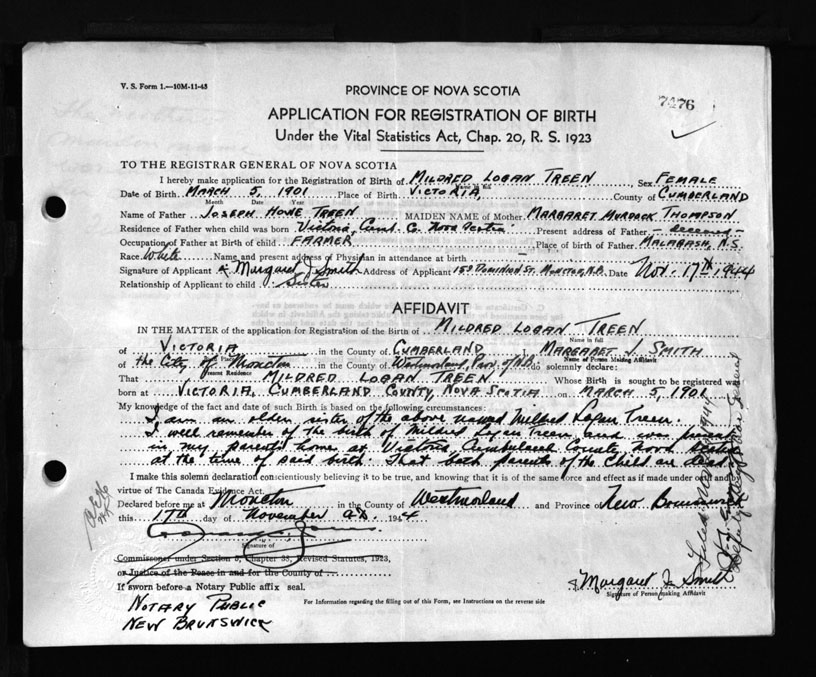 V. S. Form 1.—10M-11-43
PROVINCE OF NOVA SCOTIA
7476
APPLICATION FOR REGISTRATION OF BIRTH
Under the Vital Statistics Act, Chap. 20, R. S. 1923
TO THE REGISTRAR GENERAL OF NOVA SCOTIA
I hereby make application for the Registration of Birth of MILDRED LOGAN TREEN Sex FEMALE
Name in full
Date of Birth MARCH 5, 1901 Place of Birth VICTORIA, County of CUMBERLAND
Month Date Year
Name of Father JOSEPH HOWE TREEN MAIDEN NAME of Mother MARGARET MURDOCK THOMPSON
Residence of Father when child was born Victoria, Cumb. Co. Nova Scotia Present address of Father - deceased -
Occupation of Father at Birth of child FARMER Place of Birth of Father MALAGASH, N.S.
Race White Name and present address of Physician in attendance at birth —
Signature of Applicant Margaret J. Smith Address of Applicant 159 DOMINION ST. MONCTON, N.B. Date Nov. 17th 1944
Relationship of Applicant to child Sister
AFFIDAVIT
IN THE MATTER of the application for Registration of the Birth of MILDRED LOGAN TREEN
Name in full
of VICTORIA in the County of CUMBERLAND MARGARET J. SMITH
Name of Person Making Affidavit
of the City of Moncton in the County of Westmorland, Prov. of N.B. do solemnly declare:
Present Residence
That MILDRED LOGAN TREEN Whose Birth is sought to be registered was
born at VICTORIA, CUMBERLAND COUNTY, NOVA SCOTIA on MARCH 5, 1901
My knowledge of the fact and date of such Birth is based on the following circumstances:
I am an older sister of the above named Mildred Logan Treen.
I well remember of the birth of Mildred Logan Treen, and was present
in my parents home at Victoria Cumberland County Nova Scotia
at the time of said birth. That both parents of the Child are dead.
I make this solemn declaration conscientiously believing it to be true, and knowing that it is of the same force and effect as if made under oath and
virtue of The Canada Evidence Act.
Declared before me at Moncton in the County of Westmorland and Province of New Brunswick
this 17th day of November A.D. 1944
Signature of
Commissioner under Section 3, Chapter 38, Revised Statutes, 1923,
or Justice of the Peace in and for the County of
If sworn before a Notary Public affix seal.
NOTARY PUBLIC
NEW BRUNSWICK
For Information regarding the filling out of this Form, see Instructions on the reverse side
Margaret J. Smith
Signature of Person making Affidavit
Deputy Registrar General